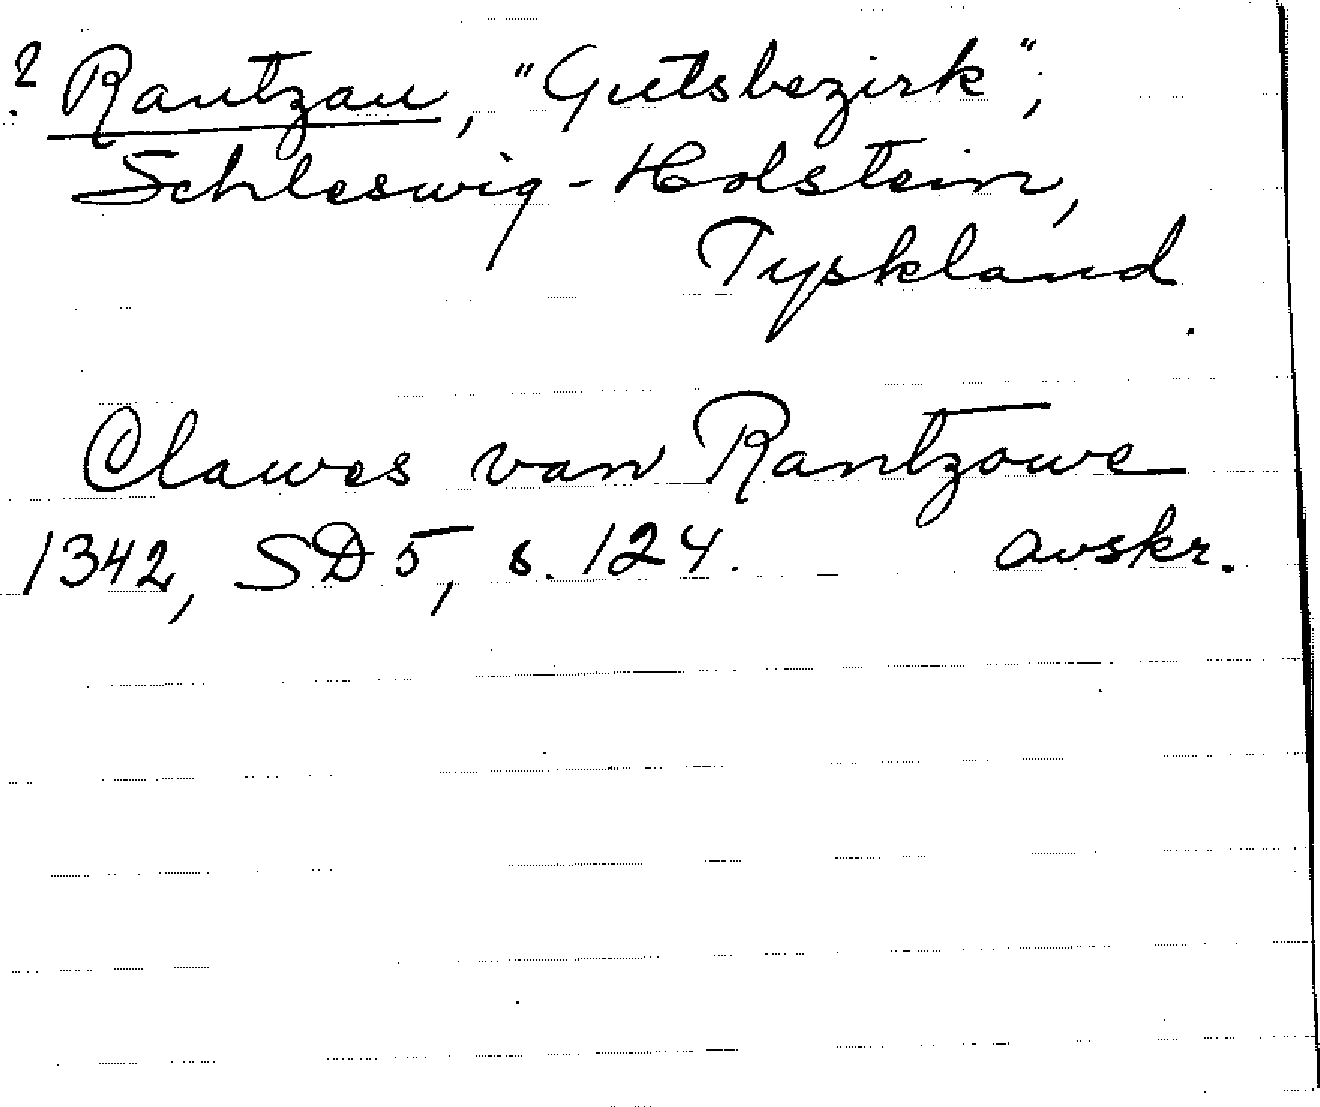 ? Rantzau, "Gutsbezirk",
Schleswig-Holstein,
Tyskland.
Clawes van Rantzowe
1342, SD 5, s. 124. avskr.